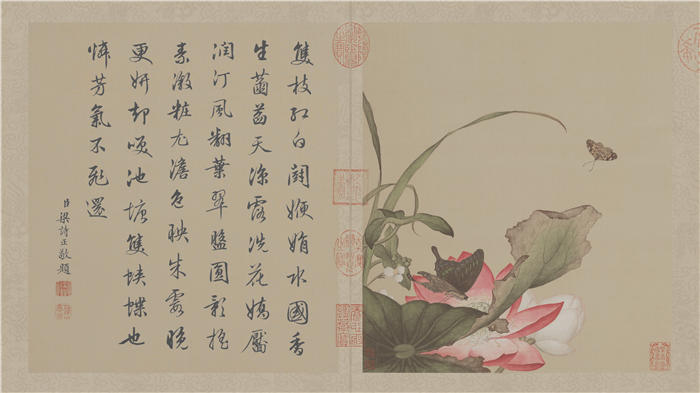 雙枝紅白鬪㛹娟水國香
生菡萏天涼露洗花嬌靨
潤汀風翻葉翠盤圓影搖
素瀲粧尤澹色映朱霞晚
更妍却笑池塘雙蛺蝶也
憐芳氣不飛還
臣梁詩正敬題